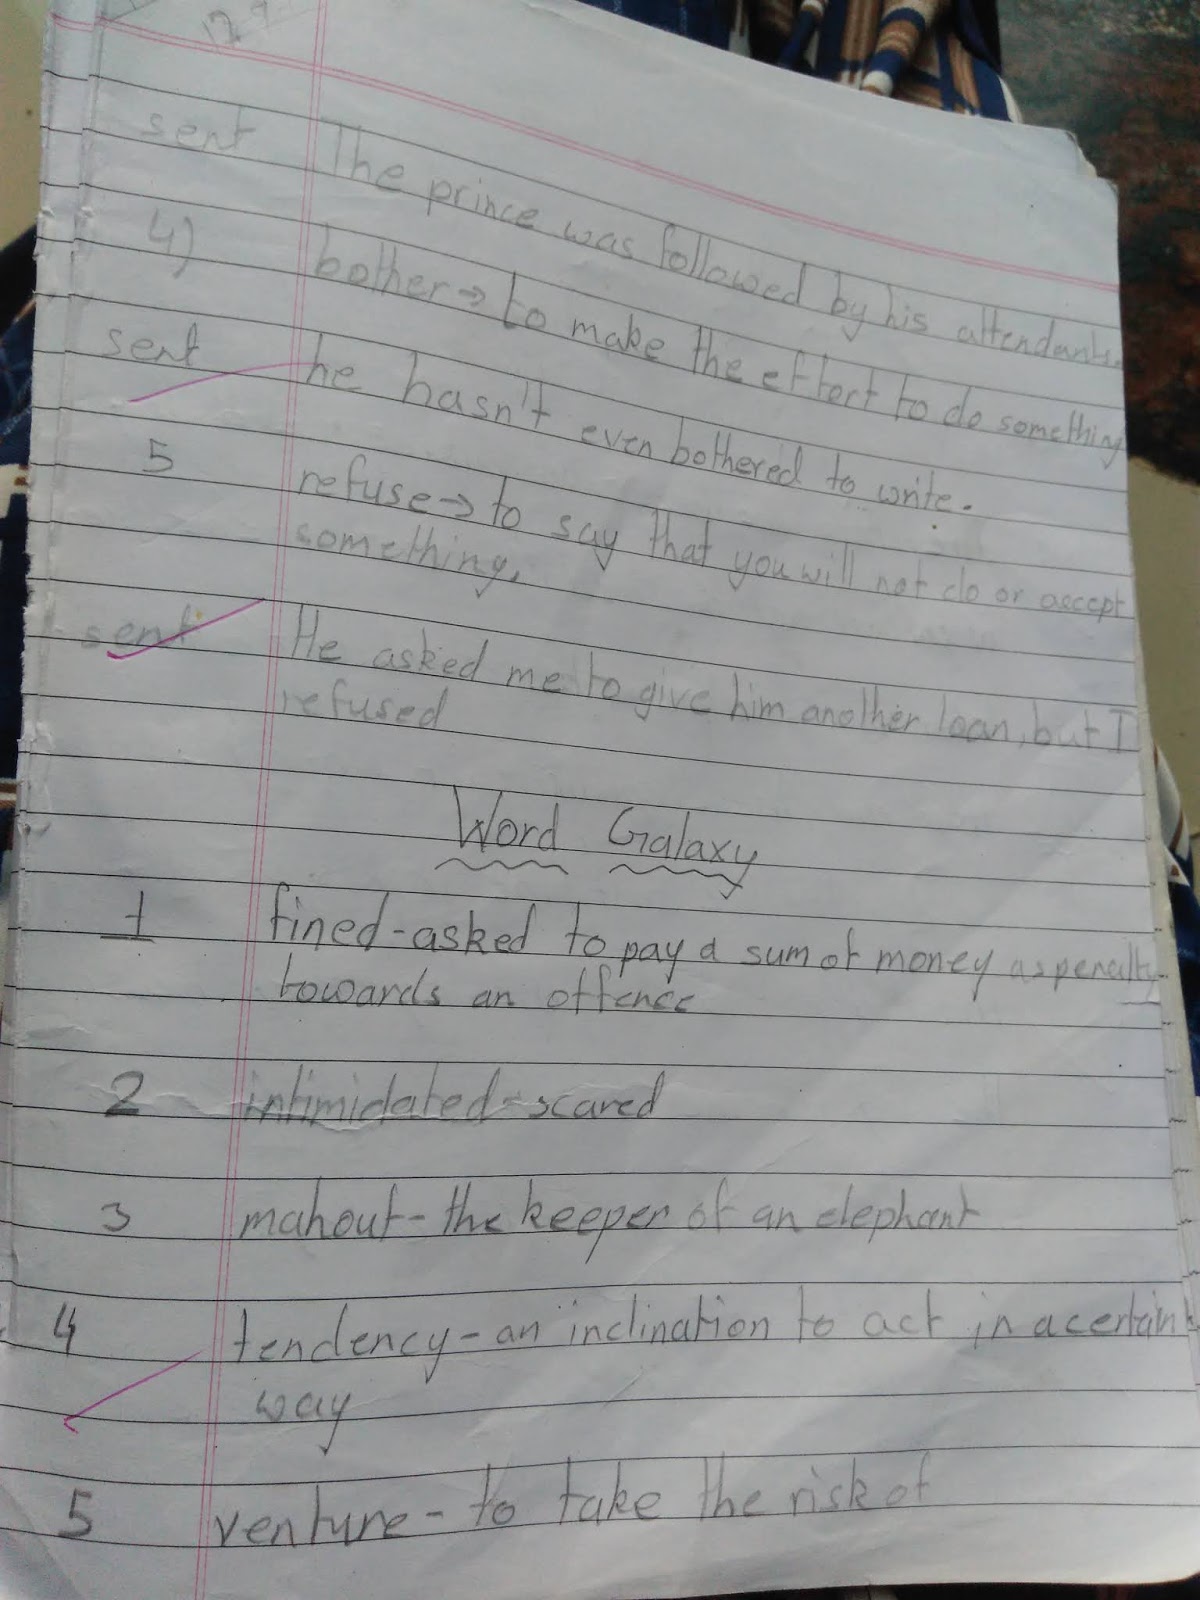 sent The prince was followed by his attendants.
4) bother → to make the effort to do something
sent he hasn't even bothered to write.
5 refuse → to say that you will not do or accept
something,
sent He asked me to give him another loan, but I
refused
Word Galaxy
1 fined - asked to pay a sum of money as penalty
towards an offence
2 intimidated - scared
3 mahout - the keeper of an elephant
4 tendency - an inclination to act in a certain
way
5 venture - to take the risk of